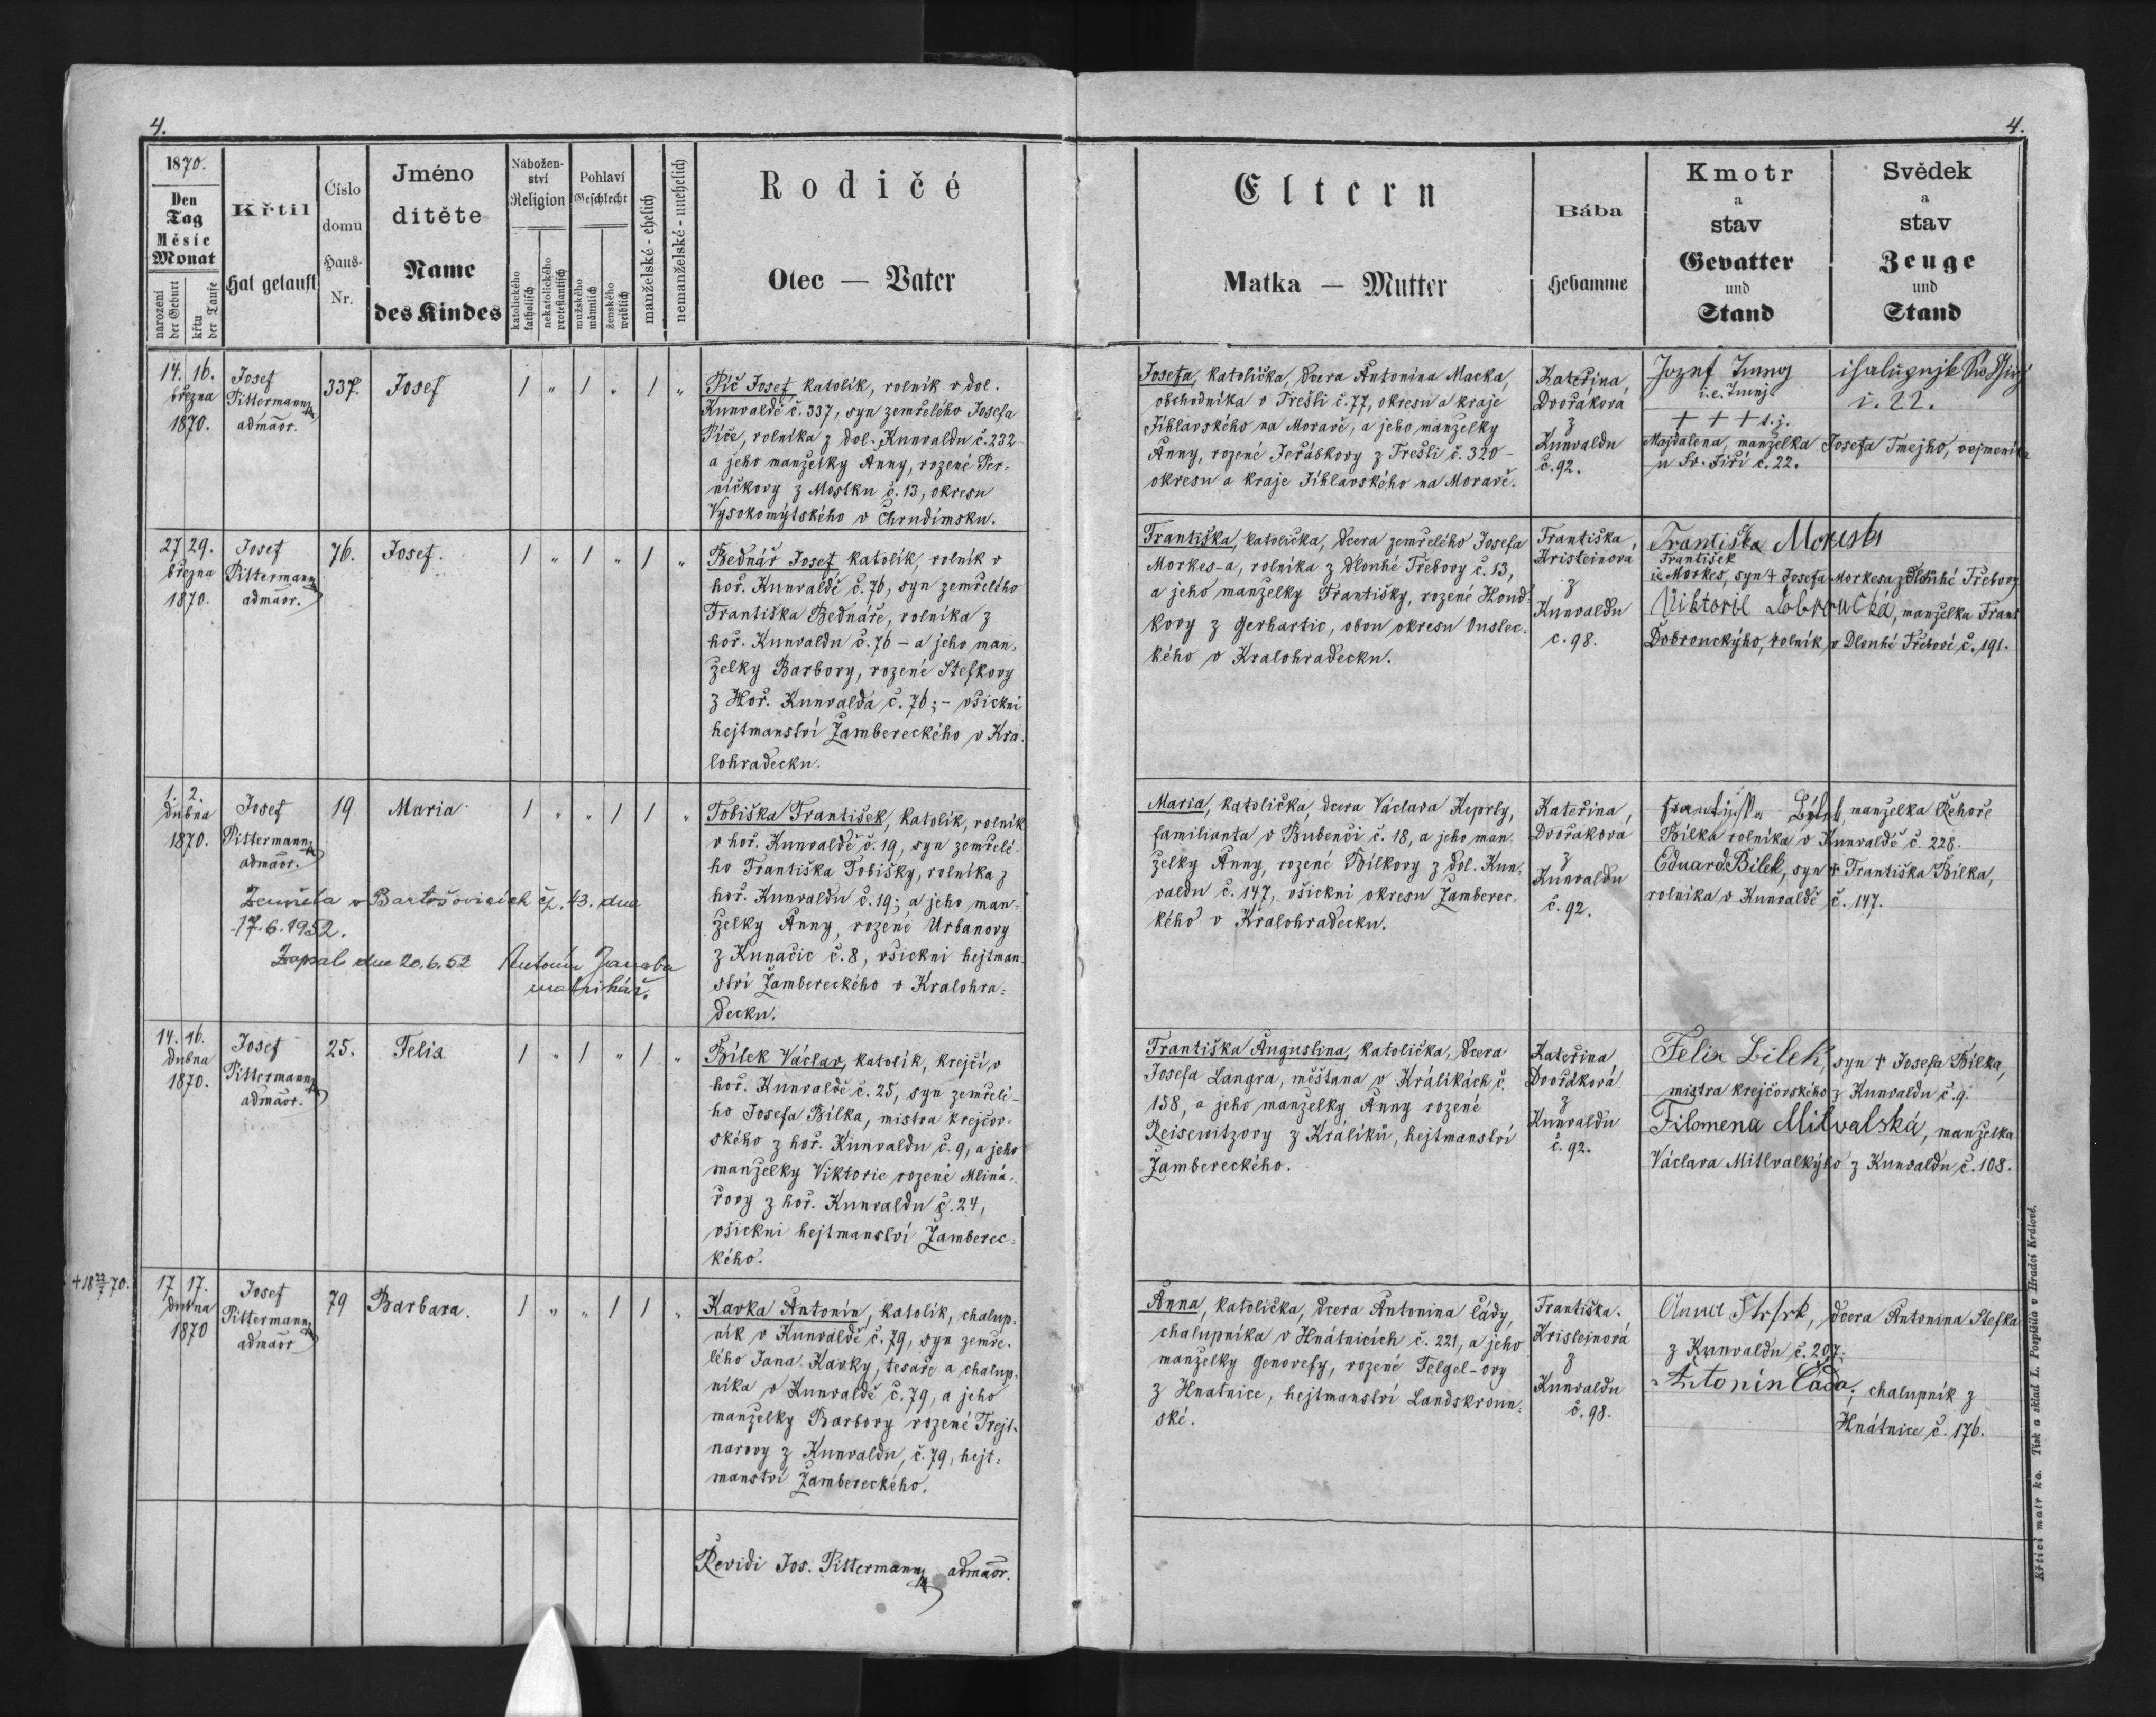 4.
4.
1870.
Den
Tag
Měsíc
Monat
narození
der Geburt
křtu
der Taufe
Křtil
Hat getauft
Číslo
domu
Haus-
Nr.
Jméno
dítěte
Name
des Kindes
Nábožen-
ství
Religion
katolického
katholisch
nekatolického
protestantisch
Pohlaví
Geschlecht
mužského
männlich
ženského
weiblich
manželské - ehelich
nemanželské - unehelich
Rodičé
Otec — Vater
Eltern
Matka — Mutter
Bába
Hebamme
Kmotr
a
stav
Gevatter
und
Stand
Svědek
a
stav
Zeuge
und
Stand
14. 16.
března
1870.
Josef
Pittermann
admāor.
337.
Josef
1 „ 1 „ 1 „
Píč Josef, katolík, rolník v dol.
Kunvaldě č. 337, syn zemřelého Josefa
Píče, rolníka z dol. Kunvaldu č. 232
a jeho manželky Anny, rozené Per-
níčkovy z Mostku č. 13, okresu
Vysokomýtského v Chrudimsku.
Josefa, katolička, dcera Antonína Macka,
obchodníka v Trešti č. 77, okresu a kraje
Jihlavského na Moravě, a jeho manželky
Anny, rozené Jeřábkovy z Trešti č. 320 –
okresu a kraje Jihlavského na Moravě.
Kateřina,
Dvořáková
z
Kunvaldu
č. 92.
+ + + t.j.
Majdalena, manželka Josefa Tmejho,
u Sv. Jiří č. 22.
27 29.
března
1870.
Josef
Pittermann
admāor.
76.
Josef.
1 „ 1 „ 1 „
Bednář Josef, katolík, rolník v
hoř. Kunvaldě č. 76, syn zemřelého
Františka Bednáře, rolníka z
hoř. Kunvaldu č. 76 – a jeho man-
želky Barbory, rozené Stefkovy
z Hoř. Kunvalda č. 76; – všickni
hejtmanství Žambereckého v Kra-
lohradecku.
Františka, katolička, dcera zemřelého Josefa
Morkes-a, rolníka z Dlouhé Třebovy č. 13,
a jeho manželky Františky, rozené Houd-
kovy z Gerhartic, obou okresu Oustec-
kého v Kralohradecku.
Františka,
Kristeinová
z
Kunvaldu
č. 98.
Františka
František
ie Morkes, syn + Josefa Morkesa z Dlouhé Třebovy
Viktorie Dobroucká, manželka Frant
Dobrouckýho, rolník v Dlouhé Třebové č. 191.
1. 2.
dubna
1870.
Josef
Pittermann
admāor.
19
Maria
1 „ „ 1 1 „
Tobiška František, katolík, rolník
v hoř. Kunvaldě č. 19, syn zemřelé-
ho Františka Tobišky, rolníka z
hoř. Kunvaldu č. 19; a jeho man-
želky Anny, rozené Urbanovy
z Kunačic č. 8, všickni hejtman-
ství Žambereckého v Kralohra-
decku.
Zemřela v Bartošovicích čp. 43. dne
17.6.1952.
Zapsal dne 20.6.52 Antonín
matrikář.
Maria, katolička, dcera Václava Keprty,
familianta v Bubenči č. 18, a jeho man-
želky Anny, rozené Bílkovy z dol. Kun-
valdu č. 147, všickni okresu Žamberec-
kého v Kralohradecku.
Kateřina,
Dvořáková
z
Kunvaldu
č. 92.
manželka Řehoře
Bílka rolníka v Kunvaldě č. 228.
Eduard Bílek, syn + Františka Bílka,
rolníka v Kunvaldě č. 147.
14. 16.
dubna
1870.
Josef
Pittermann
admāor.
25.
Felix
1 „ 1 „ 1 „
Bílek Václav, katolík, krejčí v
hoř. Kunvaldě č. 25, syn zemřelé-
ho Josefa Bílka, mistra krejčov-
ského z hoř. Kunvaldu č. 9, a jeho
manželky Viktorie rozené Mliná-
řovy z hoř. Kunvaldu č. 24,
všickni hejtmanství Žamberec-
kého.
Františka Augustina, katolička, dcera
Josefa Langra, měštana v Králíkách č.
158, a jeho manželky Anny rozené
Reisewitzovy z Králíků, hejtmanství
Žambereckého.
Kateřina
Dvořáková
z
Kunvaldu
č. 92.
Felix Bílek, syn + Josefa Bílka,
mistra krejčovského z Kunvaldu č. 9.
Filomena Mitvalská, manželka
Václava Mitlvalkýho z Kunvaldu č. 108.
17. 17.
dubna
1870
Josef
Pittermann
admāor
79
Barbara.
1 „ „ 1 1 „
Kavka Antonín, katolík, chalup-
ník v Kunvaldě č. 79, syn zemře-
lého Jana Kavky, tesaře a chalup-
níka v Kunvaldě č. 79, a jeho
manželky Barbory rozené Trejt-
narovy z Kunvaldu, č. 79, hejt-
manství Žambereckého.
Anna, katolička, dcera Antonina Čády,
chalupníka v Hnátnicích č. 221, a jeho
manželky Genovefy, rozené Felgel-ovy
z Hnatnice, hejtmanství Landskroun-
ské.
Františka.
Kristeinová
z
Kunvaldu
č. 98.
Anna dcera Antonina Stefka
z Kunvaldu č. 207.
Antonín Čáda, chalupník z
Hnátnice č. 176.
Revidi Jos. Pittermann admāor.
Křticí matrika. Tisk a sklad L. Pospíšila v Hradci Králové.